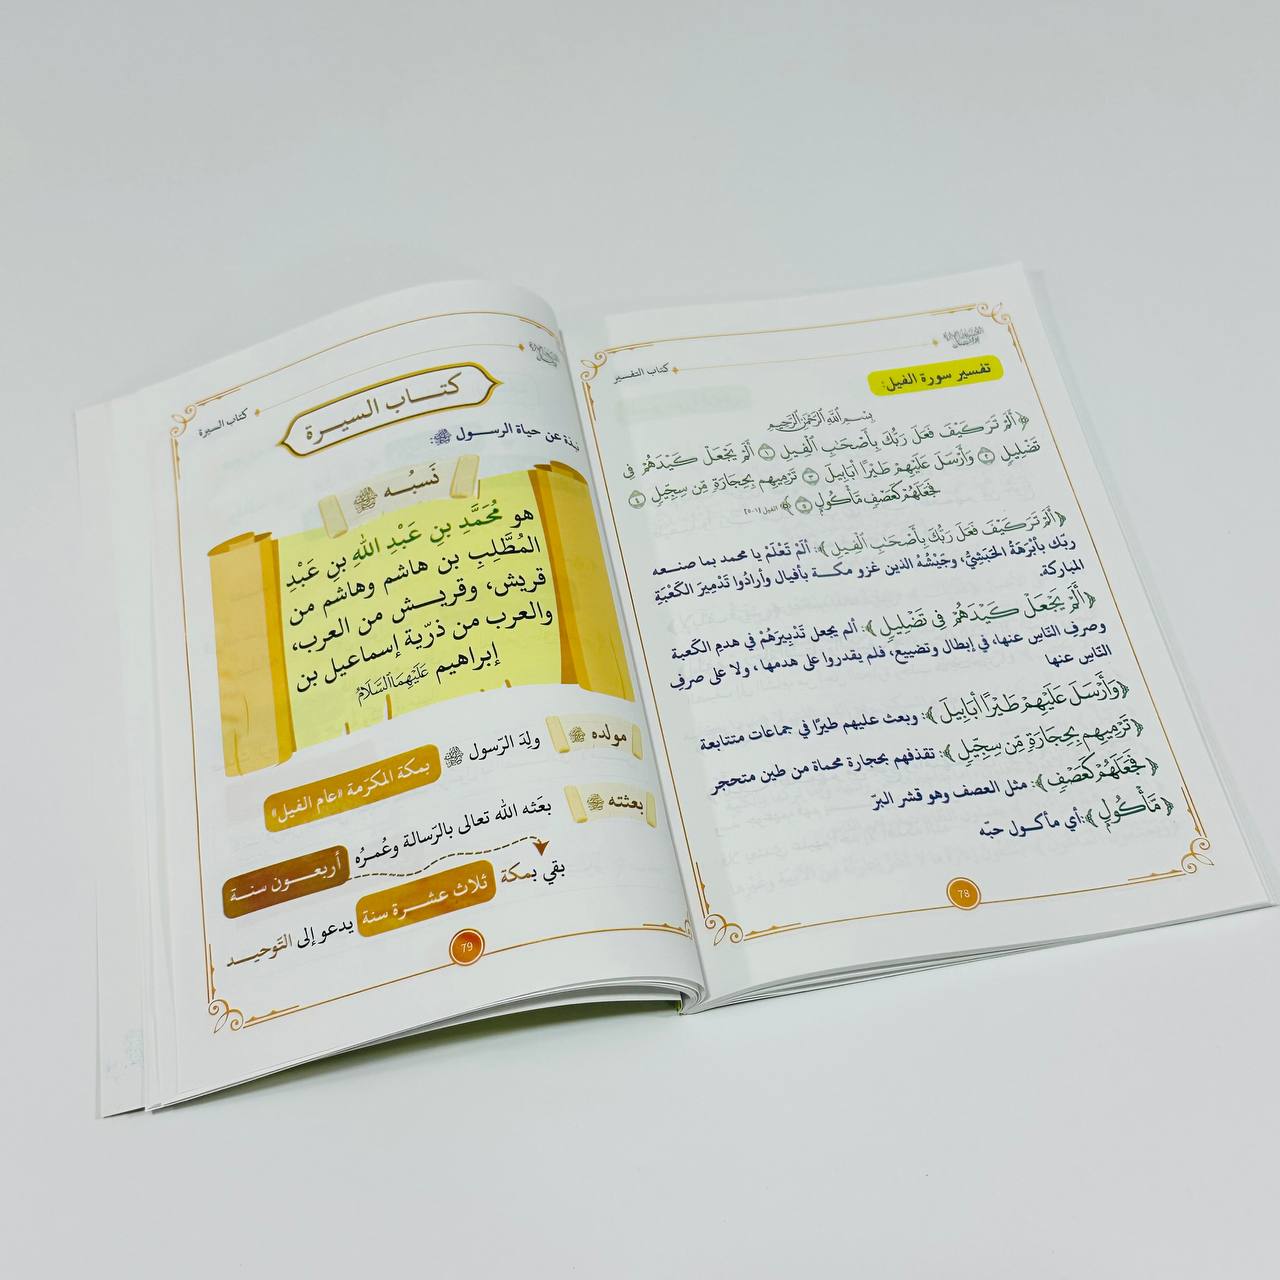 كتاب التفسير
تفسير سورة الفيل:
بِسْمِ اللَّهِ الرَّحْمَٰنِ الرَّحِيمِ
﴿أَلَمْ تَرَ كَيْفَ فَعَلَ رَبُّكَ بِأَصْحَٰبِ ٱلْفِيلِ ١ أَلَمْ يَجْعَلْ كَيْدَهُمْ فِي
تَضْلِيلٍ ٢ وَأَرْسَلَ عَلَيْهِمْ طَيْرًا أَبَابِيلَ ٣ تَرْمِيهِم بِحِجَارَةٍ مِّن سِجِّيلٍ ٤
فَجَعَلَهُمْ كَعَصْفٍ مَّأْكُولٍ ٥﴾ [الفيل ١-٥]
﴿أَلَمْ تَرَ كَيْفَ فَعَلَ رَبُّكَ بِأَصْحَٰبِ ٱلْفِيلِ﴾: ألَمْ تَعْلَمْ يا محمد بما صنعه
ربّك بأبْرَهَةَ الحَبَشِيِّ، وجَيْشُهُ الذين غزو مكة بأفيال وأرادُوا تَدْمِيرَ الكَعْبَةِ
المباركة.
﴿أَلَمْ يَجْعَلْ كَيْدَهُمْ فِي تَضْلِيلٍ﴾: ألم يجعل تَدْبِيرَهُمْ في هدمِ الكَعبة
وصرفِ النّاس عنها، في إبطال وتضييع، فلم يقدروا على هدمها ، ولا على صرفِ
النّاس عنها
﴿وَأَرْسَلَ عَلَيْهِمْ طَيْرًا أَبَابِيلَ﴾: وبعث عليهم طيرًا في جماعات متتابعة
﴿تَرْمِيهِم بِحِجَارَةٍ مِّن سِجِّيلٍ﴾: تقذفهم بحجارة محماة من طين متحجر
﴿فَجَعَلَهُمْ كَعَصْفٍ﴾: مثل العصف وهو قشر البرّ
﴿مَّأْكُولٍ﴾: أي مأكول حبّه
78
كتاب السيرة
كتاب السيرة
نبذة عن حياة الرسول ﷺ:
نَسبُه ﷺ
هو مُحَمَّد بنِ عَبْدِ اللهِ بنِ عَبْدِ
المُطَّلِبِ بن هاشم وهاشم من
قريش، وقريش من العرب،
والعرب من ذرّية إسماعيل بن
إبراهيم عَلَيْهِمَا السَّلَامُ
مولده ﷺ ولِدَ الرّسول ﷺ بمكة المكرّمة «عام الفيل»
بعثته ﷺ بعَثه الله تعالى بالرّسالة وعُمرُه أربعون سنة
بقي بمكة ثلاث عشرة سنة يدعو إلى التّوحيد
79